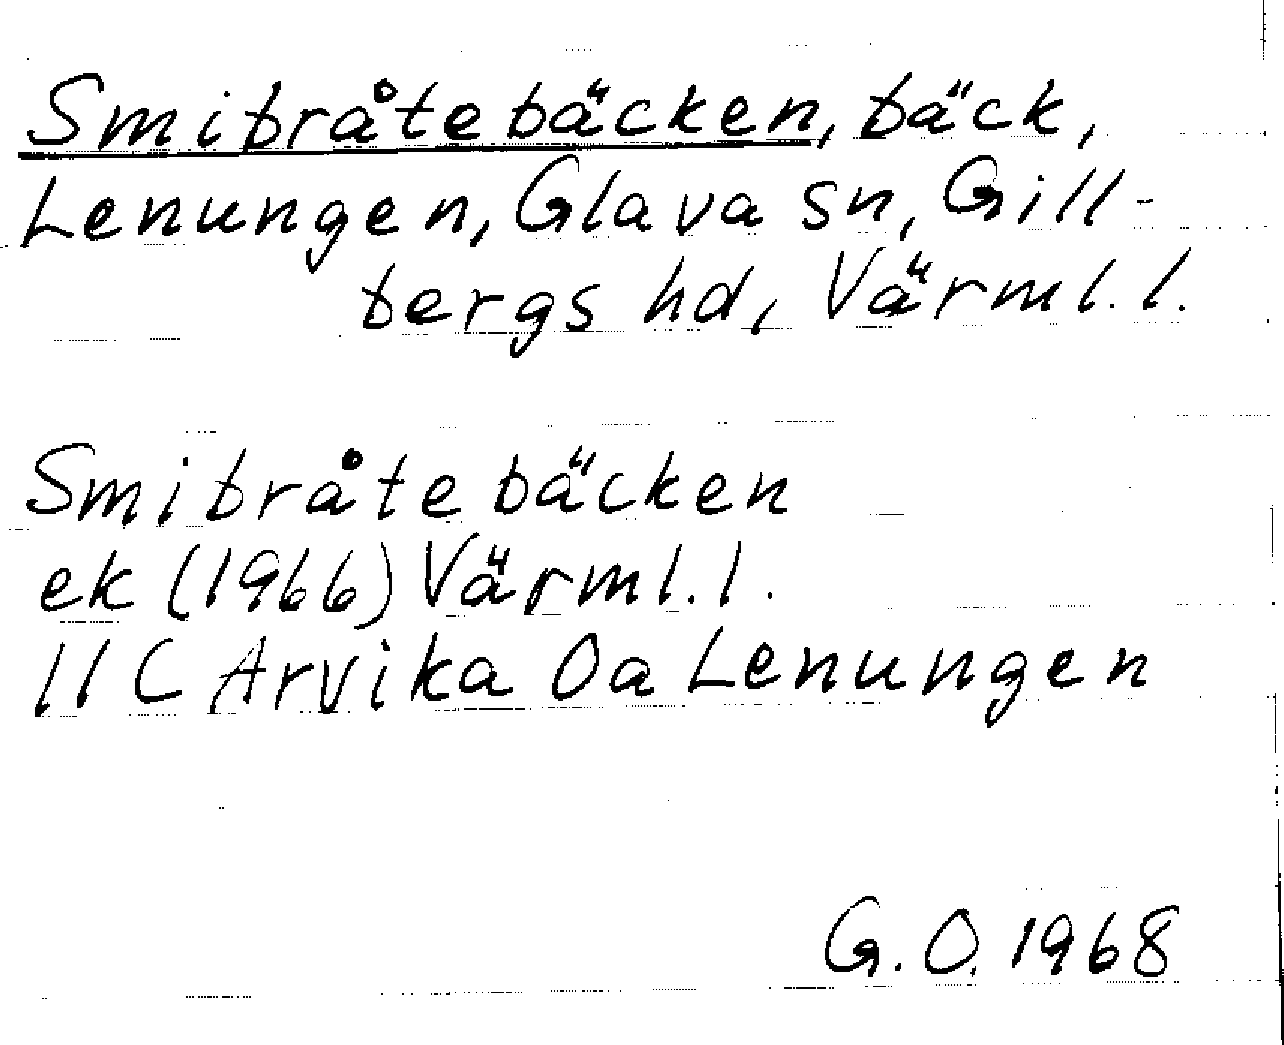 Smibråtebäcken, bäck,
Lenungen, Glava sn, Gill-
bergs hd, Värml. l.
Smibråtebäcken
ek (1966) Värml. l.
11 C Arvika 0a Lenungen
G. O. 1968